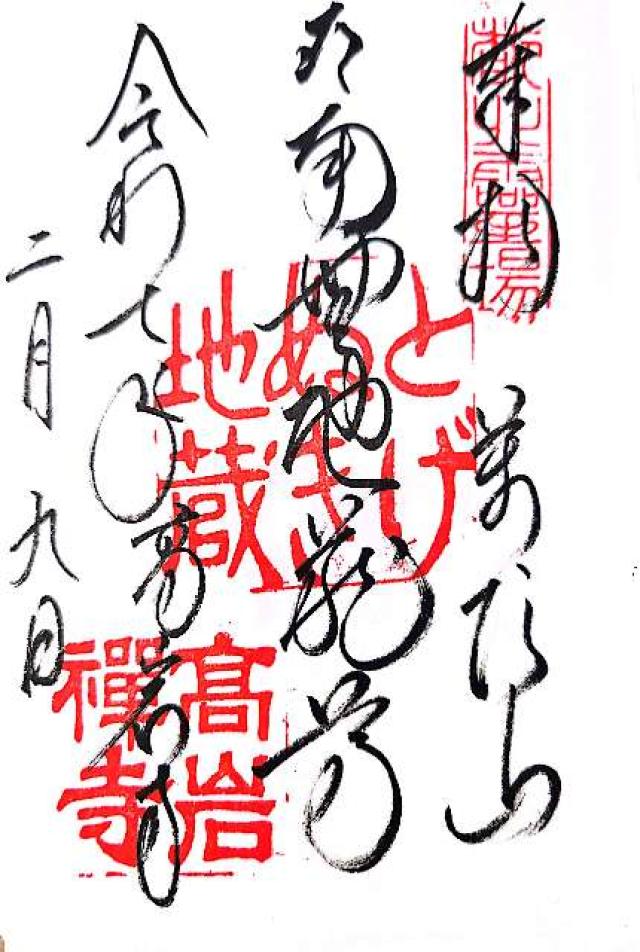 奉拝
萬頂山
霊場
地蔵尊
とげ
ぬき
地蔵
令和七年
高岩寺
二月九日
髙岩
禪寺